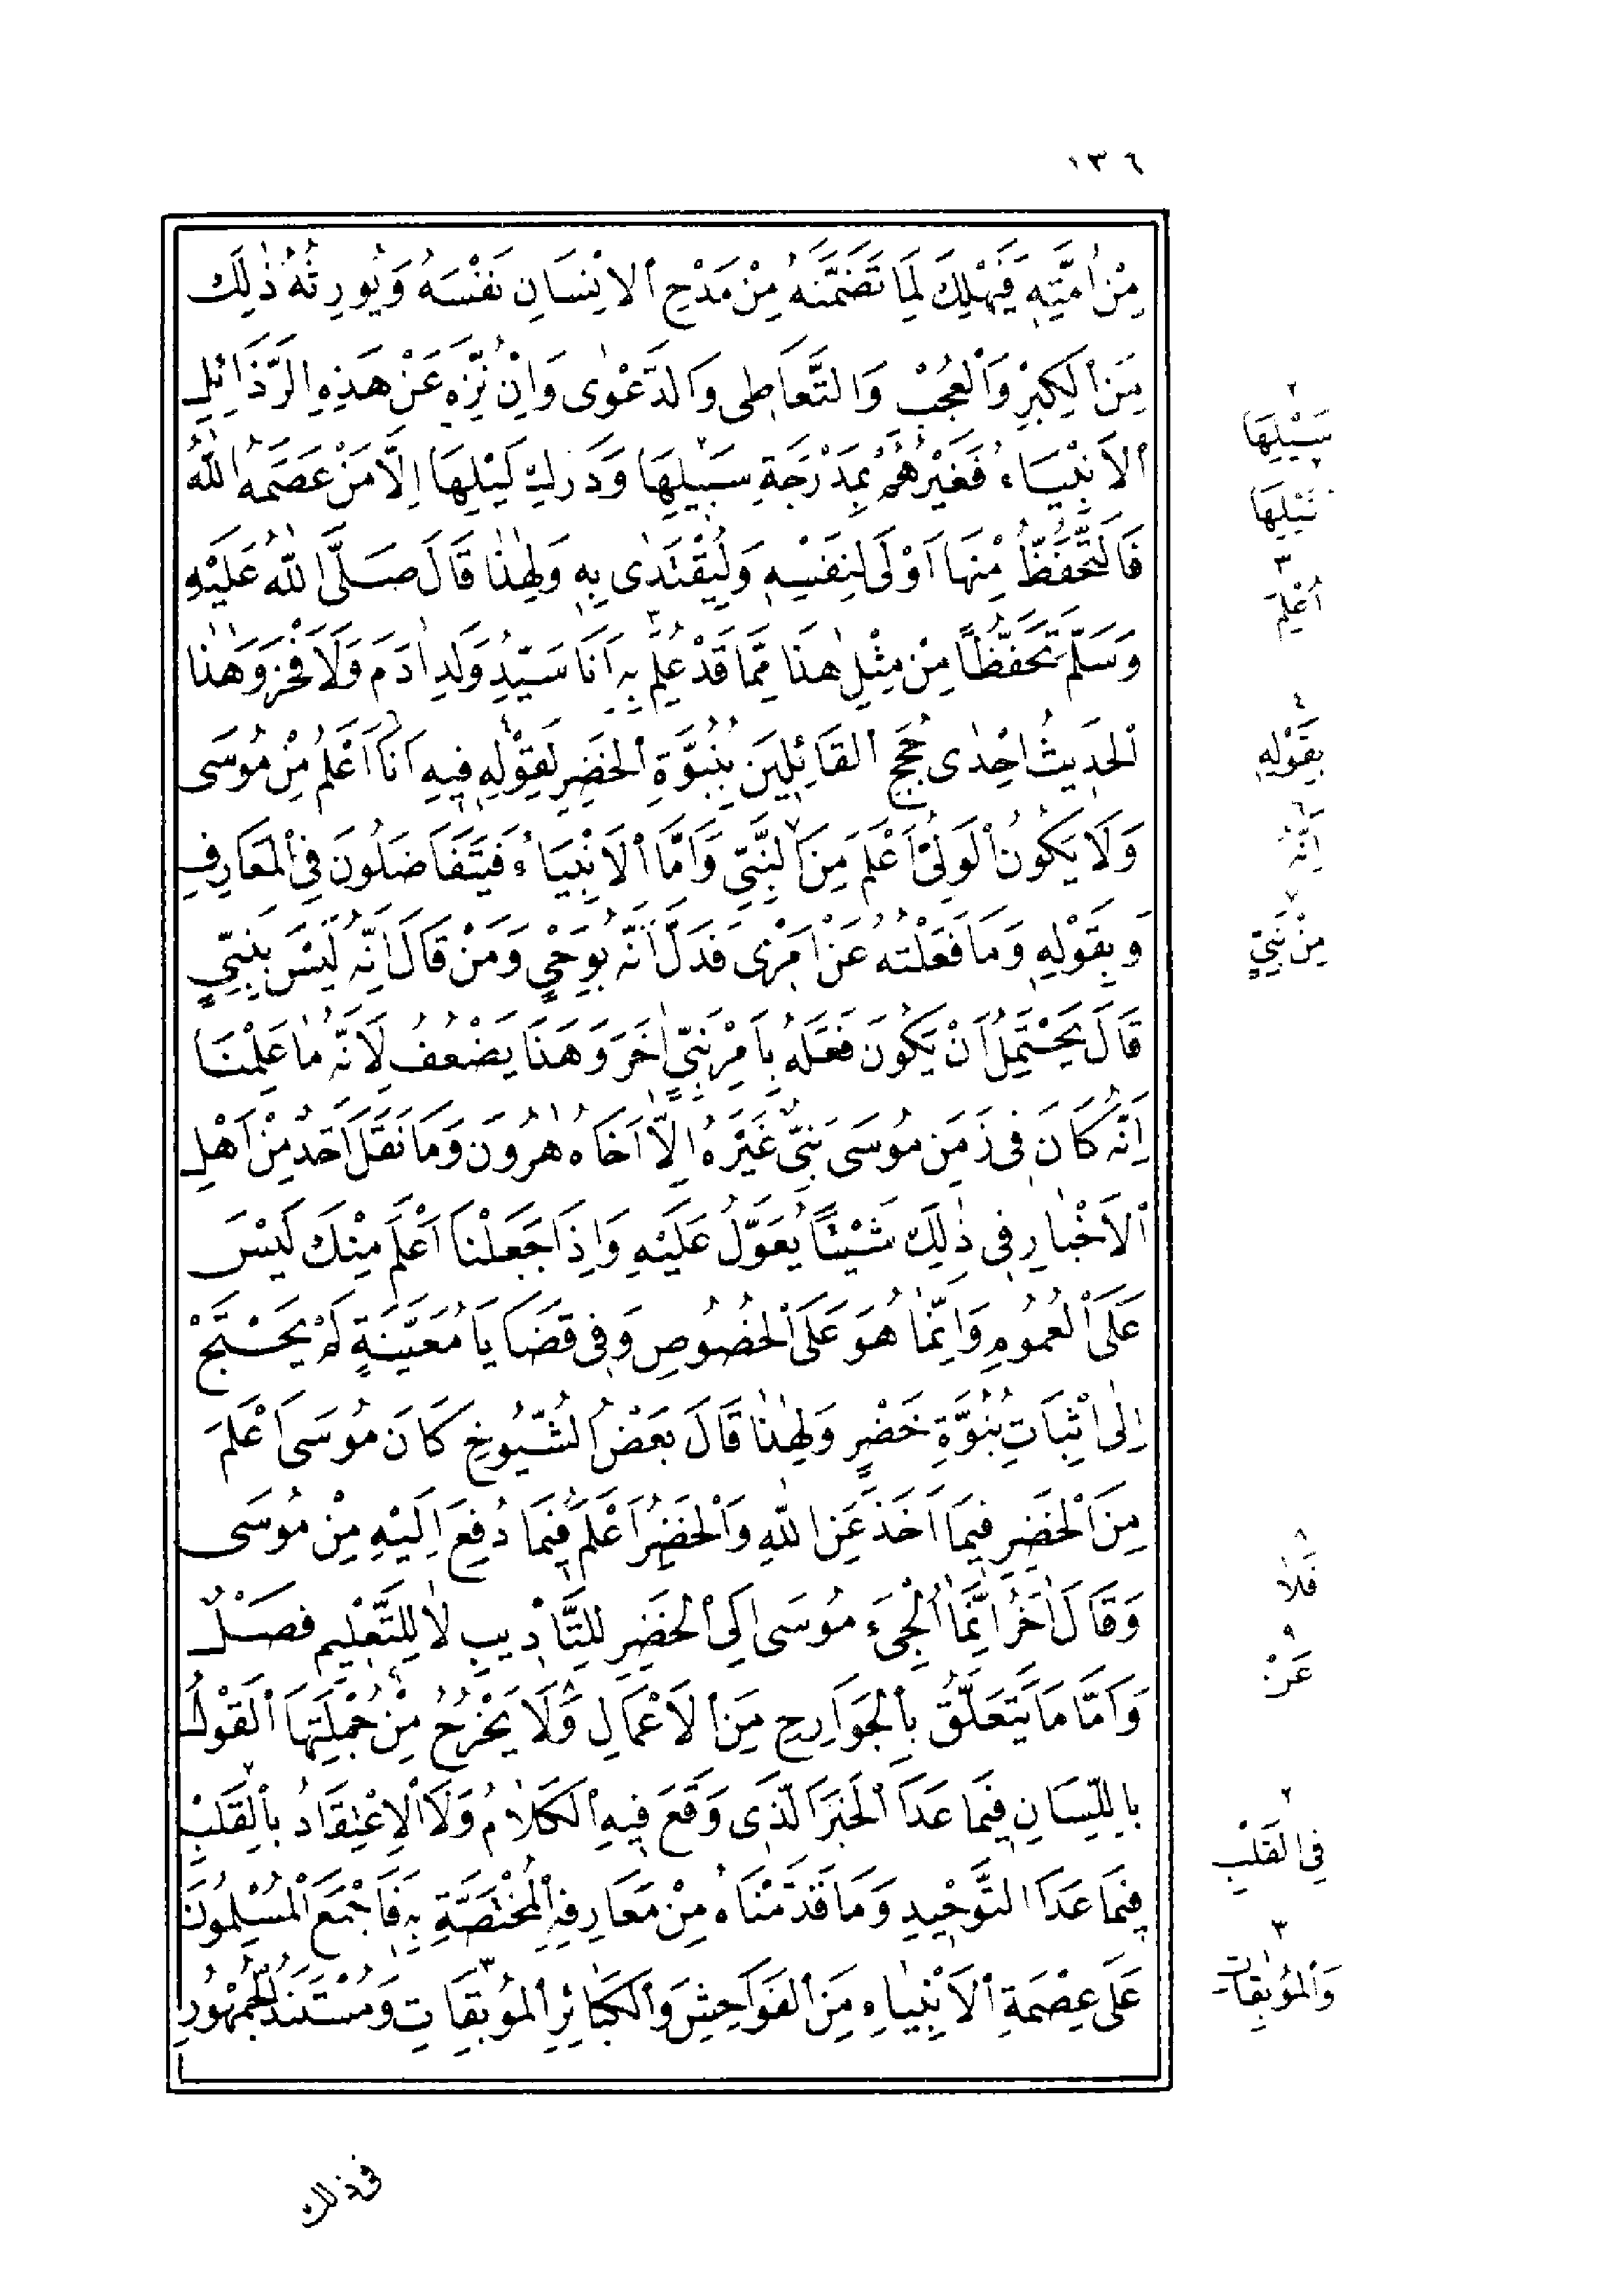 ١٣٦
مِنْ اُمَّتِهِ فَيَهْلِكَ لِمَا تَضَمَّنَهُ مِنْ مَدْحِ الْاِنْسَانِ نَفْسَهُ وَيُورِثُهُ ذٰلِكَ
مِنَ الْكِبْرِ وَالْعُجْبِ وَالتَّعَاطِى وَالدَّعْوٰى وَاِنْ نُزِّهَ عَنْ هَذِهِ الرَّذَائِلِ
الْاَنْبِيَاءُ فَغَيْرُهُمْ بِمَدْرَجَةِ سَبِيلِهَا وَدَرَكِ لَيْلِهَا اِلَّا مَنْ عَصَمَهُ اللهُ
فَالتَّحَفُّظُ مِنْهَا اَوْلَى لِنَفْسِهِ وَلِيُقْتَدٰى بِهِ وَلِهٰذَا قَالَ صَلَّى اللهُ عَلَيْهِ
وَسَلَّمَ تَحَفُّظًا مِنْ مِثْلِ هٰذَا مِمَّا قَدْ عُلِمَ بِهِ اَنَا سَيِّدُ وَلَدِ اٰدَمَ وَلَا فَخْرَ وَهٰذَا
الْحَدِيثُ اِحْدٰى حُجَجِ الْقَائِلِينَ بِنُبُوَّةِ الْخَضِرِ لِقَوْلِهِ فِيهِ اَنَا اَعْلَمُ مِنْ مُوسَى
وَلَا يَكُونُ الْوَلِىُّ اَعْلَمَ مِنَ النَّبِىِّ وَاَمَّا الْاَنْبِيَاءُ فَيَتَفَاضَلُونَ فِى الْمَعَارِفِ
وَبِقَوْلِهِ وَمَا فَعَلْتُهُ عَنْ اَمْرِى فَدَلَّ اَنَّهُ بِوَحْىٍ وَمَنْ قَالَ اِنَّهُ لَيْسَ بِنَبِىٍّ
قَالَ يَحْتَمِلُ اَنْ يَكُونَ فَعَلَهُ بِاَمْرِ نَبِىٍّ اٰخَرَ وَهَذَا يَضْعُفُ لِاَنَّهُ مَا عَلِمْنَا
اَنَّهُ كَانَ فِى زَمَنِ مُوسَى نَبِىٌّ غَيْرُهُ اِلَّا اَخَاهُ هٰرُونَ وَمَا نَقَلَ اَحَدٌ مِنْ اَهْلِ
الْاَخْبَارِ فِى ذٰلِكَ شَيْئًا يُعَوَّلُ عَلَيْهِ وَاِذَا جَعَلْنَا اَعْلَمَ مِنْكَ لَيْسَ
عَلَى الْعُمُومِ وَاِنَّمَا هُوَ عَلَى الْخُصُوصِ وَفِى قَضَايَا مُعَيَّنَةٍ لَمْ يَحْتَجْ
اِلٰى اِثْبَاتِ نُبُوَّةِ خَضْرٍ وَلِهٰذَا قَالَ بَعْضُ الشُّيُوخِ كَانَ مُوسَى اَعْلَمَ
مِنَ الْخَضِرِ فِيمَا اَخَذَ عَنِ اللهِ وَالْخَضِرُ اَعْلَمُ فِيمَا دُفِعَ اِلَيْهِ مِنْ مُوسَى
وَقَالَ اٰخَرُ اِنَّمَا اُلْجِىَٔ مُوسَى اِلَى الْخَضِرِ لِلتَّأْدِيبِ لَا لِلتَّعْلِيمِ فَصْلٌ
وَاَمَّا مَا يَتَعَلَّقُ بِالْجَوَارِحِ مِنَ الْاَعْمَالِ وَلَا يَخْرُجُ مِنْ جُمْلَتِهَا الْقَوْلُ
بِاللِّسَانِ فِيمَا عَدَا الْخَبَرَ الَّذِى وَقَعَ فِيهِ الْكَلَامُ وَلَا الْاِعْتِقَادُ بِالْقَلْبِ
فِيمَا عَدَا التَّوْحِيدِ وَمَا قَدَّمْنَاهُ مِنْ مَعَارِفِهِ الْمُخْتَصَّةِ بِهِ فَاَجْمَعَ الْمُسْلِمُونَ
عَلَى عِصْمَةِ الْاَنْبِيَاءِ مِنَ الْفَوَاحِشِ وَالْكَبَائِرِ الْمُوبِقَاتِ وَمُسْتَنَدُ الْجُمْهُورِ
فى ذلك
٢
سَيْلِهَا
٢
نَيْلِهَا
٣
اُعْلِمَ
٤
بِقَوْلِهِ
٦
اِنَّهُ
٧
مِنْ نَبِىٍّ
٨
فَلَا
٩
عَنْ
٢
فِى الْقَلْبِ
٣
وَالْمُوبِقَاتِ